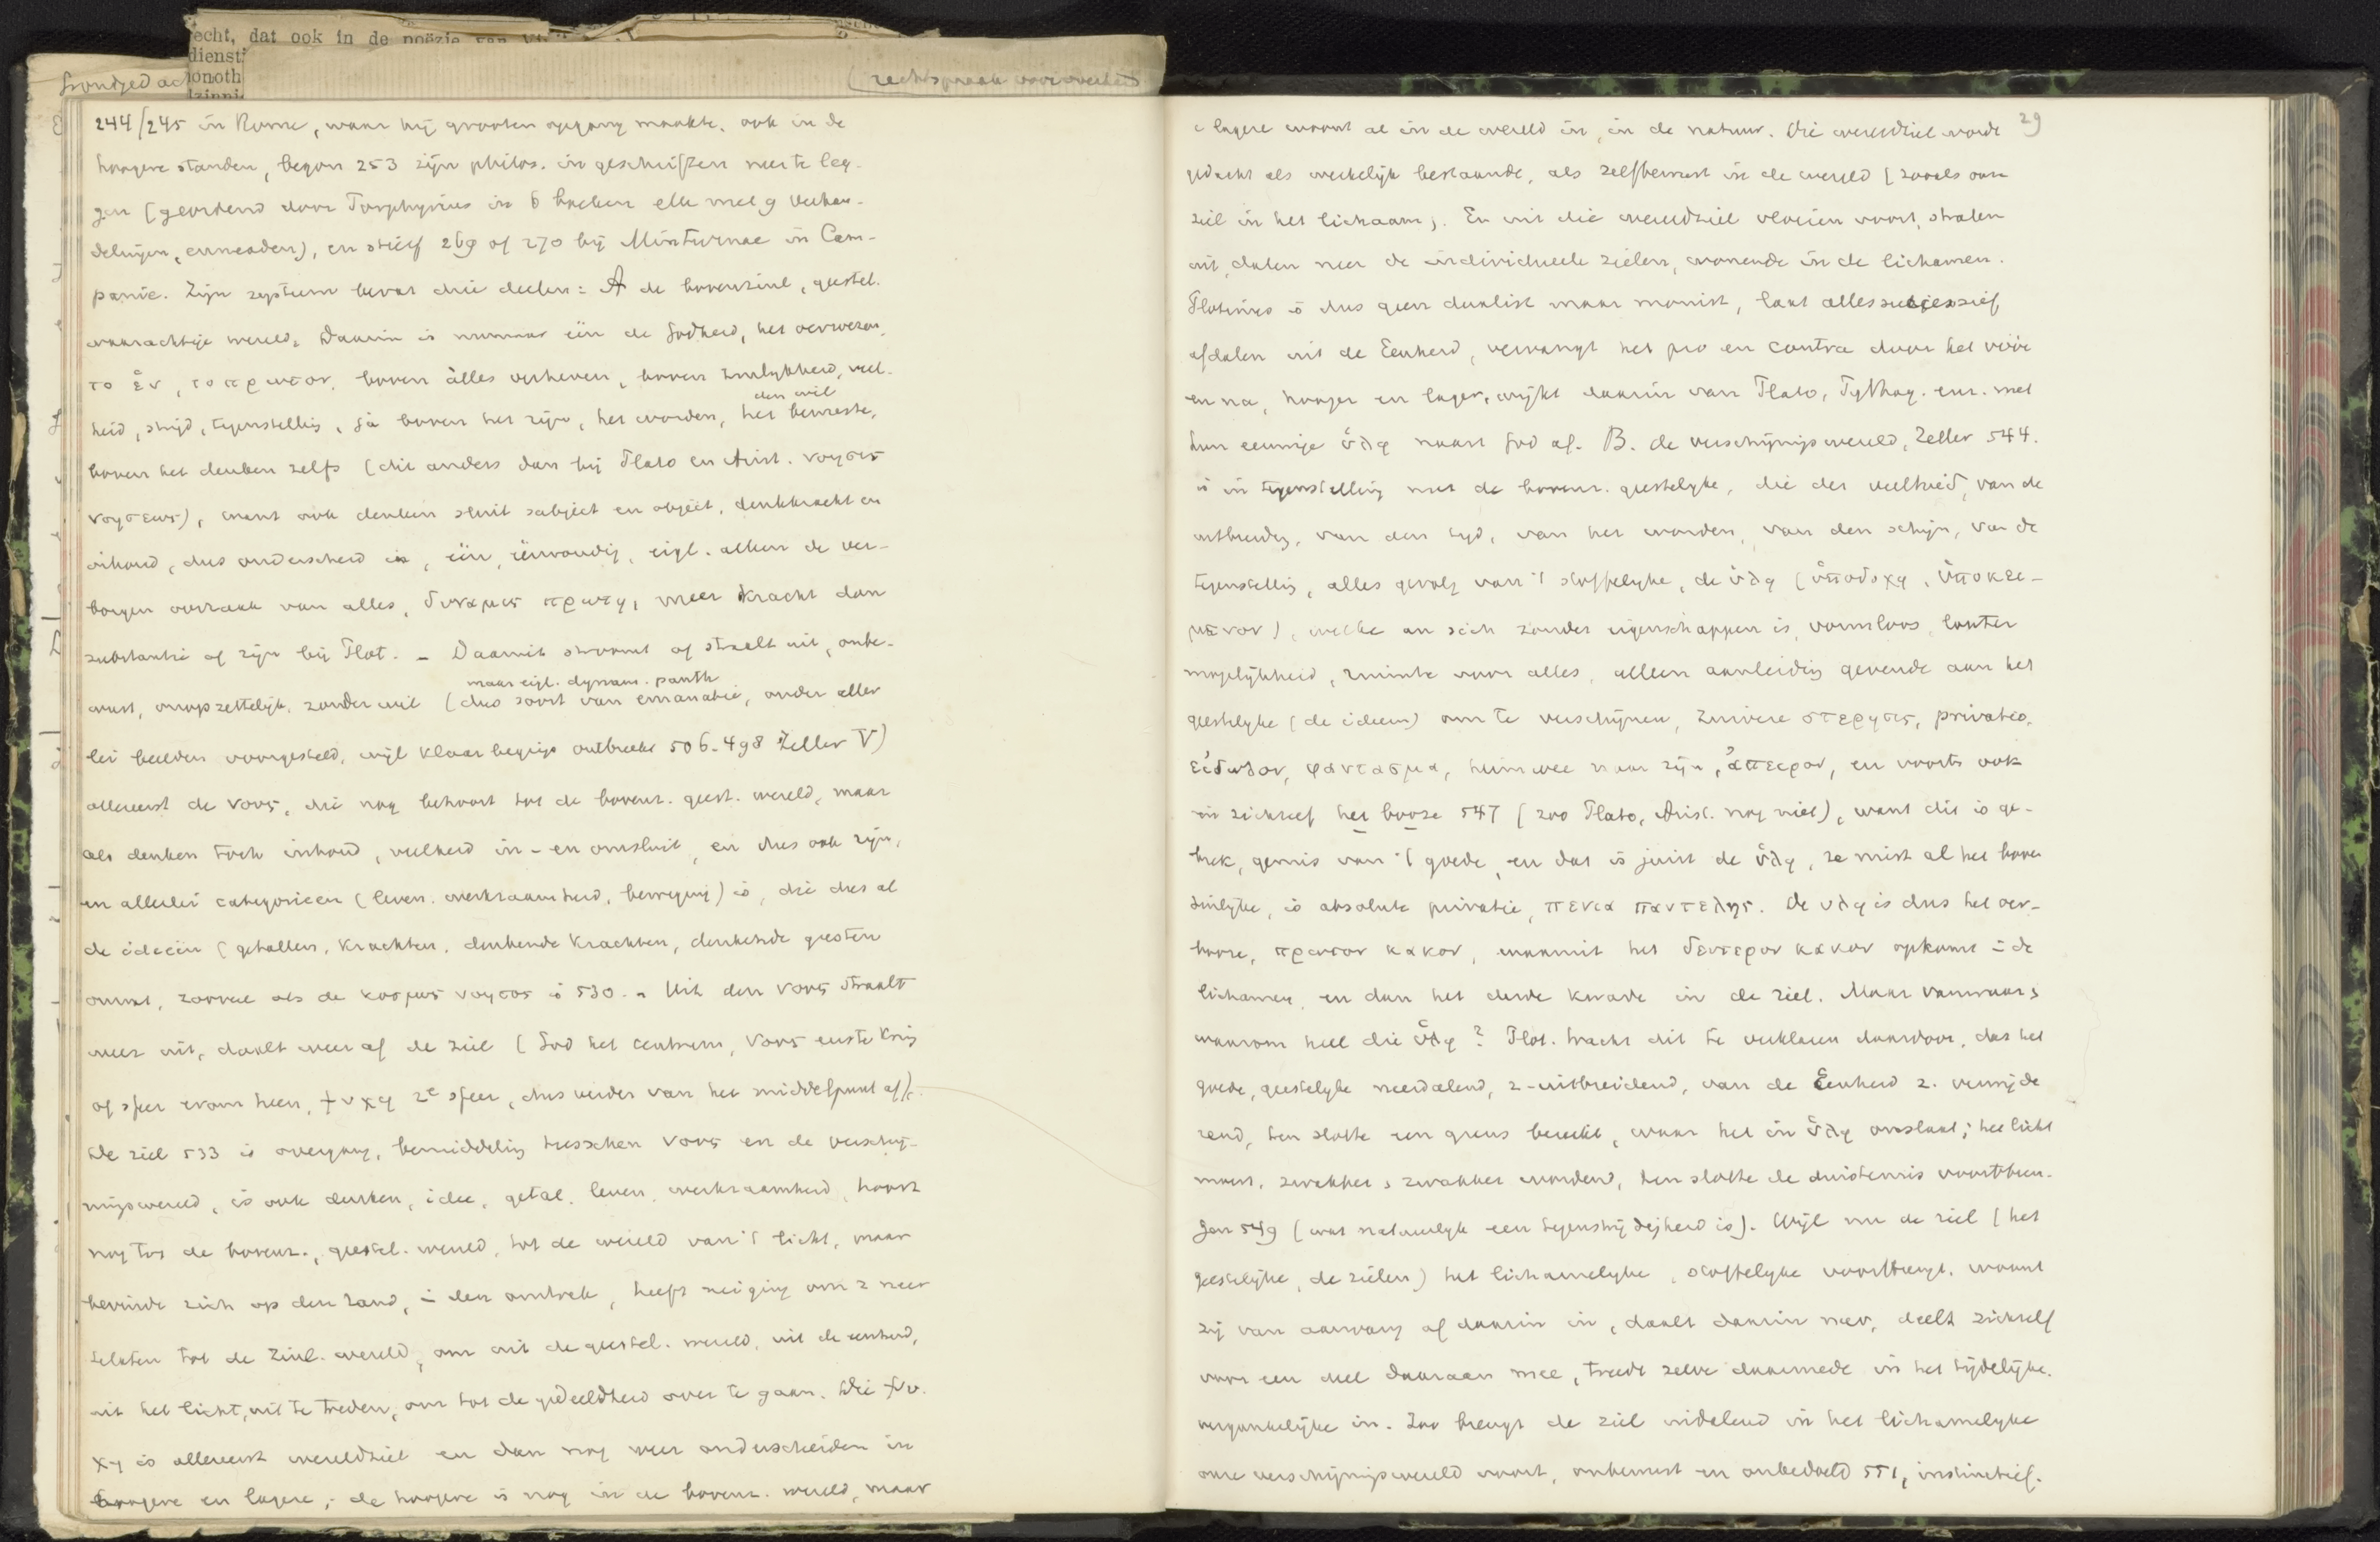 echt, dat ook in de poëzie van
dienst
onoth
Grondged
(rechtspraak
244/245 in Rome, waar hij grooten opgang maakte, ook in de
hoogere standen, begon 253 zijn philos. in geschriften neer te leg-
gen (geordend door Porphyrius in 6 boeken elk met 9 verhan-
delingen, enneaden), en stierf 269 of 270 bij Minturnae in Cam-
panie. Zijn systeem bevat drie deelen: A de bovenzinl., geestel.
waarachtige wereld. Daarin is nummer één de Godheid, het oerwezen,
το ἑν, το πρωτον, boven alles verheven, boven zinlykheid, veel-
den wil
heid, strijd, tegenstelling, ja boven het zijn, het worden, het bewuste,
boven het denken zelfs (dit anders dan bij Plato en Arist. νοησις
νοησεως), want ook denken sluit subject en object, denkkracht en
inhoud, dus onderscheid in, één, éénvoudig, eigl. alleen de ver-
borgen oorzaak van alles, δυναμις πρωτη, meer kracht dan
substantie of zijn bij Plot. - Daaruit stroomt of straalt uit, onbe-
maar eigl. dynam. panth
wust, onopzettelijk, zonder wil (dus soort van emanatie, onder aller
lei beelden voorgesteld, wijl klaar begrip ontbreekt 506-498 Zeller V)
allereerst de νους, die nog behoort tot de bovenz. geest. wereld, maar
als denken toch inhoud, veelheid in- en omsluit, en dus ook zijn,
en allerlei categorieen (leven, werkzaamheid, beweging) is, die dus al
de ideeën (getallen, krachten, denkende krachten, denkende geesten
omvat, zoowel als de κοσμος νοητος is 530. - Uit den νους straalt
weer uit, daalt weer af de ziel (God het centrum, νους eerste kring
of sfeer erom heen, ψυχη 2e sfeer, dus verder van het middelpunt af).
De ziel 533 is overgang, bemiddeling tusschen νους en de verschij-
ningswereld, is ook denken, idee, getal, leven, werkzaamheid, hoort
nog tot de bovenz., geestel. wereld, tot de wereld van 't licht, maar
bevindt zich op den rand, = den omtrek, heeft neiging om z neer
telaten tot de zinl. wereld, om uit de geestel. wereld, uit de eenheid,
uit het licht, uit te treden, om tot de gedeeldheid over te gaan. Die ψυ-
χη is allereerst wereldziel en dan nog weer onderscheiden in
hoogere en lagere; de hoogere is nog in de bovenz. wereld, maar
29
e lagere woont al in de wereld in, in de natuur. Die wereldziel wordt
gedacht als werkelijk bestaande, als zelfbewust in de wereld (zooals onze
ziel in het lichaam). En uit die wereldziel vloeien voort, stralen
uit, dalen neer de individueele zielen, wonende in de lichamen.
Plotinus is dus geen dualist maar monist, laat alles successief
afdalen uit de Eenheid, vervangt het pro en contra door het vóór
en na, hooger en lager, wijkt daarin van Plato, Pythag. enz. met
hun eeuwige ὑλη naast God af. B. de verschijningswereld, Zeller 544.
is in tegenstelling met de bovenz. geestelyke, die der veelheid, van de
uitbreiding, van den tyd, van het worden, van den schijn, van de
tegenstelling, alles gevolg van 't stoffelyke, de ὑλη (ὑποδοχη, ὑποκει-
μενον), welke an sich zonder eigenschappen is, vormloos, louter
mogelijkheid, ruimte voor alles, alleen aanleiding gevende aan het
geestelyke (de ideeen) om te verschijnen, zuivere στερησις, privatio,
εἰδωλον, φαντασμα, heimwee naar zijn, ἀπειρον, en voorts ook
in zichzelf het booze 547 (zoo Plato, Arist. nog niet), want dit is ge-
brek, gemis van 't goede, en dat is juist de ὑλη, ze mist al het boven
zinlyke, is absolute privatie, πενια παντελης. De υλη is dus het oer-
booze, πρωτον κακον, waaruit het δευτερον κακον opkomt = de
lichamen, en dan het derde kwade in de ziel. Maar vanwaar,
waarom heel die ὑλη? Plot. tracht dit te verklaren daardoor, dat het
goede, geestelyke neerdalend, z-uitbreidend, van de Eenheid z. verwijde
rend, ten slotte een grens bereikt, waar het in ὑλη omslaat; het licht
moest, zwakker, zwakker wordend, ten slotte de duisternis voortbren-
gen 549 (wat natuurlyk een tegenstrijdigheid is). Wijl nu de ziel (het
geestelijke, de zielen) het lichamelyke, stoffelyke voortbrengt, woont
zij van aanvang af daarin in, daalt daarin neer, deelt zichzelf
voor een deel daaraan mee, treedt zelve daarmede in het tijdelijke,
vergankelijke in. Zoo brengt de ziel indalend in het lichamelyke
onze verschijningswereld voort, onbewust en onbedoeld 551, instinctief.